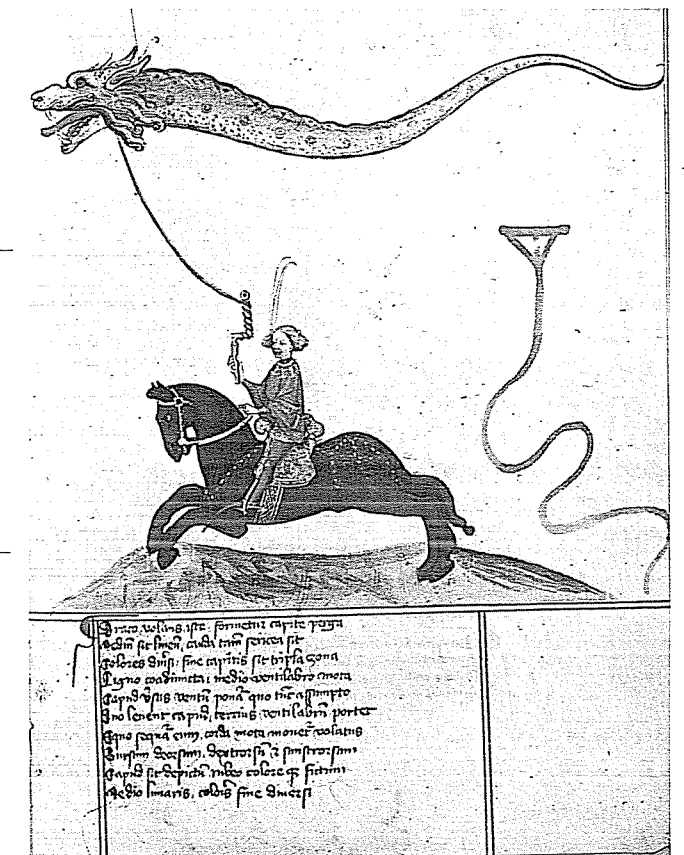 Draco volans iste formetur capite perga
Mediu sit lineu, cauda tam sericea sit
Colores diusi: fine capitis sit tripla zona
Ligno coadiuncta: medio ventilabro mota
Capud vsus ventu ponat quo tuc assumpto
Duo levent capud, tercius ventilabru portet
Equo sequat eum, corda mota movet volatus
Sursum deorsum, dextrorsu et sinistrorsum
Capud sit depictu rubeo colore fictum
Medio lunaris, coloris fine diversi